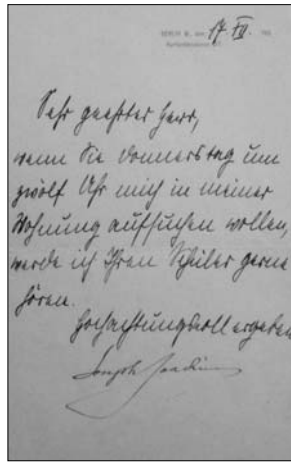 BERLIN W., den 17 VII. 190
Sehr geehrter Herr,
wenn Sie Donnerstag um
zwölf Uhr mich in meiner
Wohnung aufsuchen wollen,
werde ich Ihren Schüler gerne
hören.
Hochachtungsvoll ergeben
Joseph Joachim